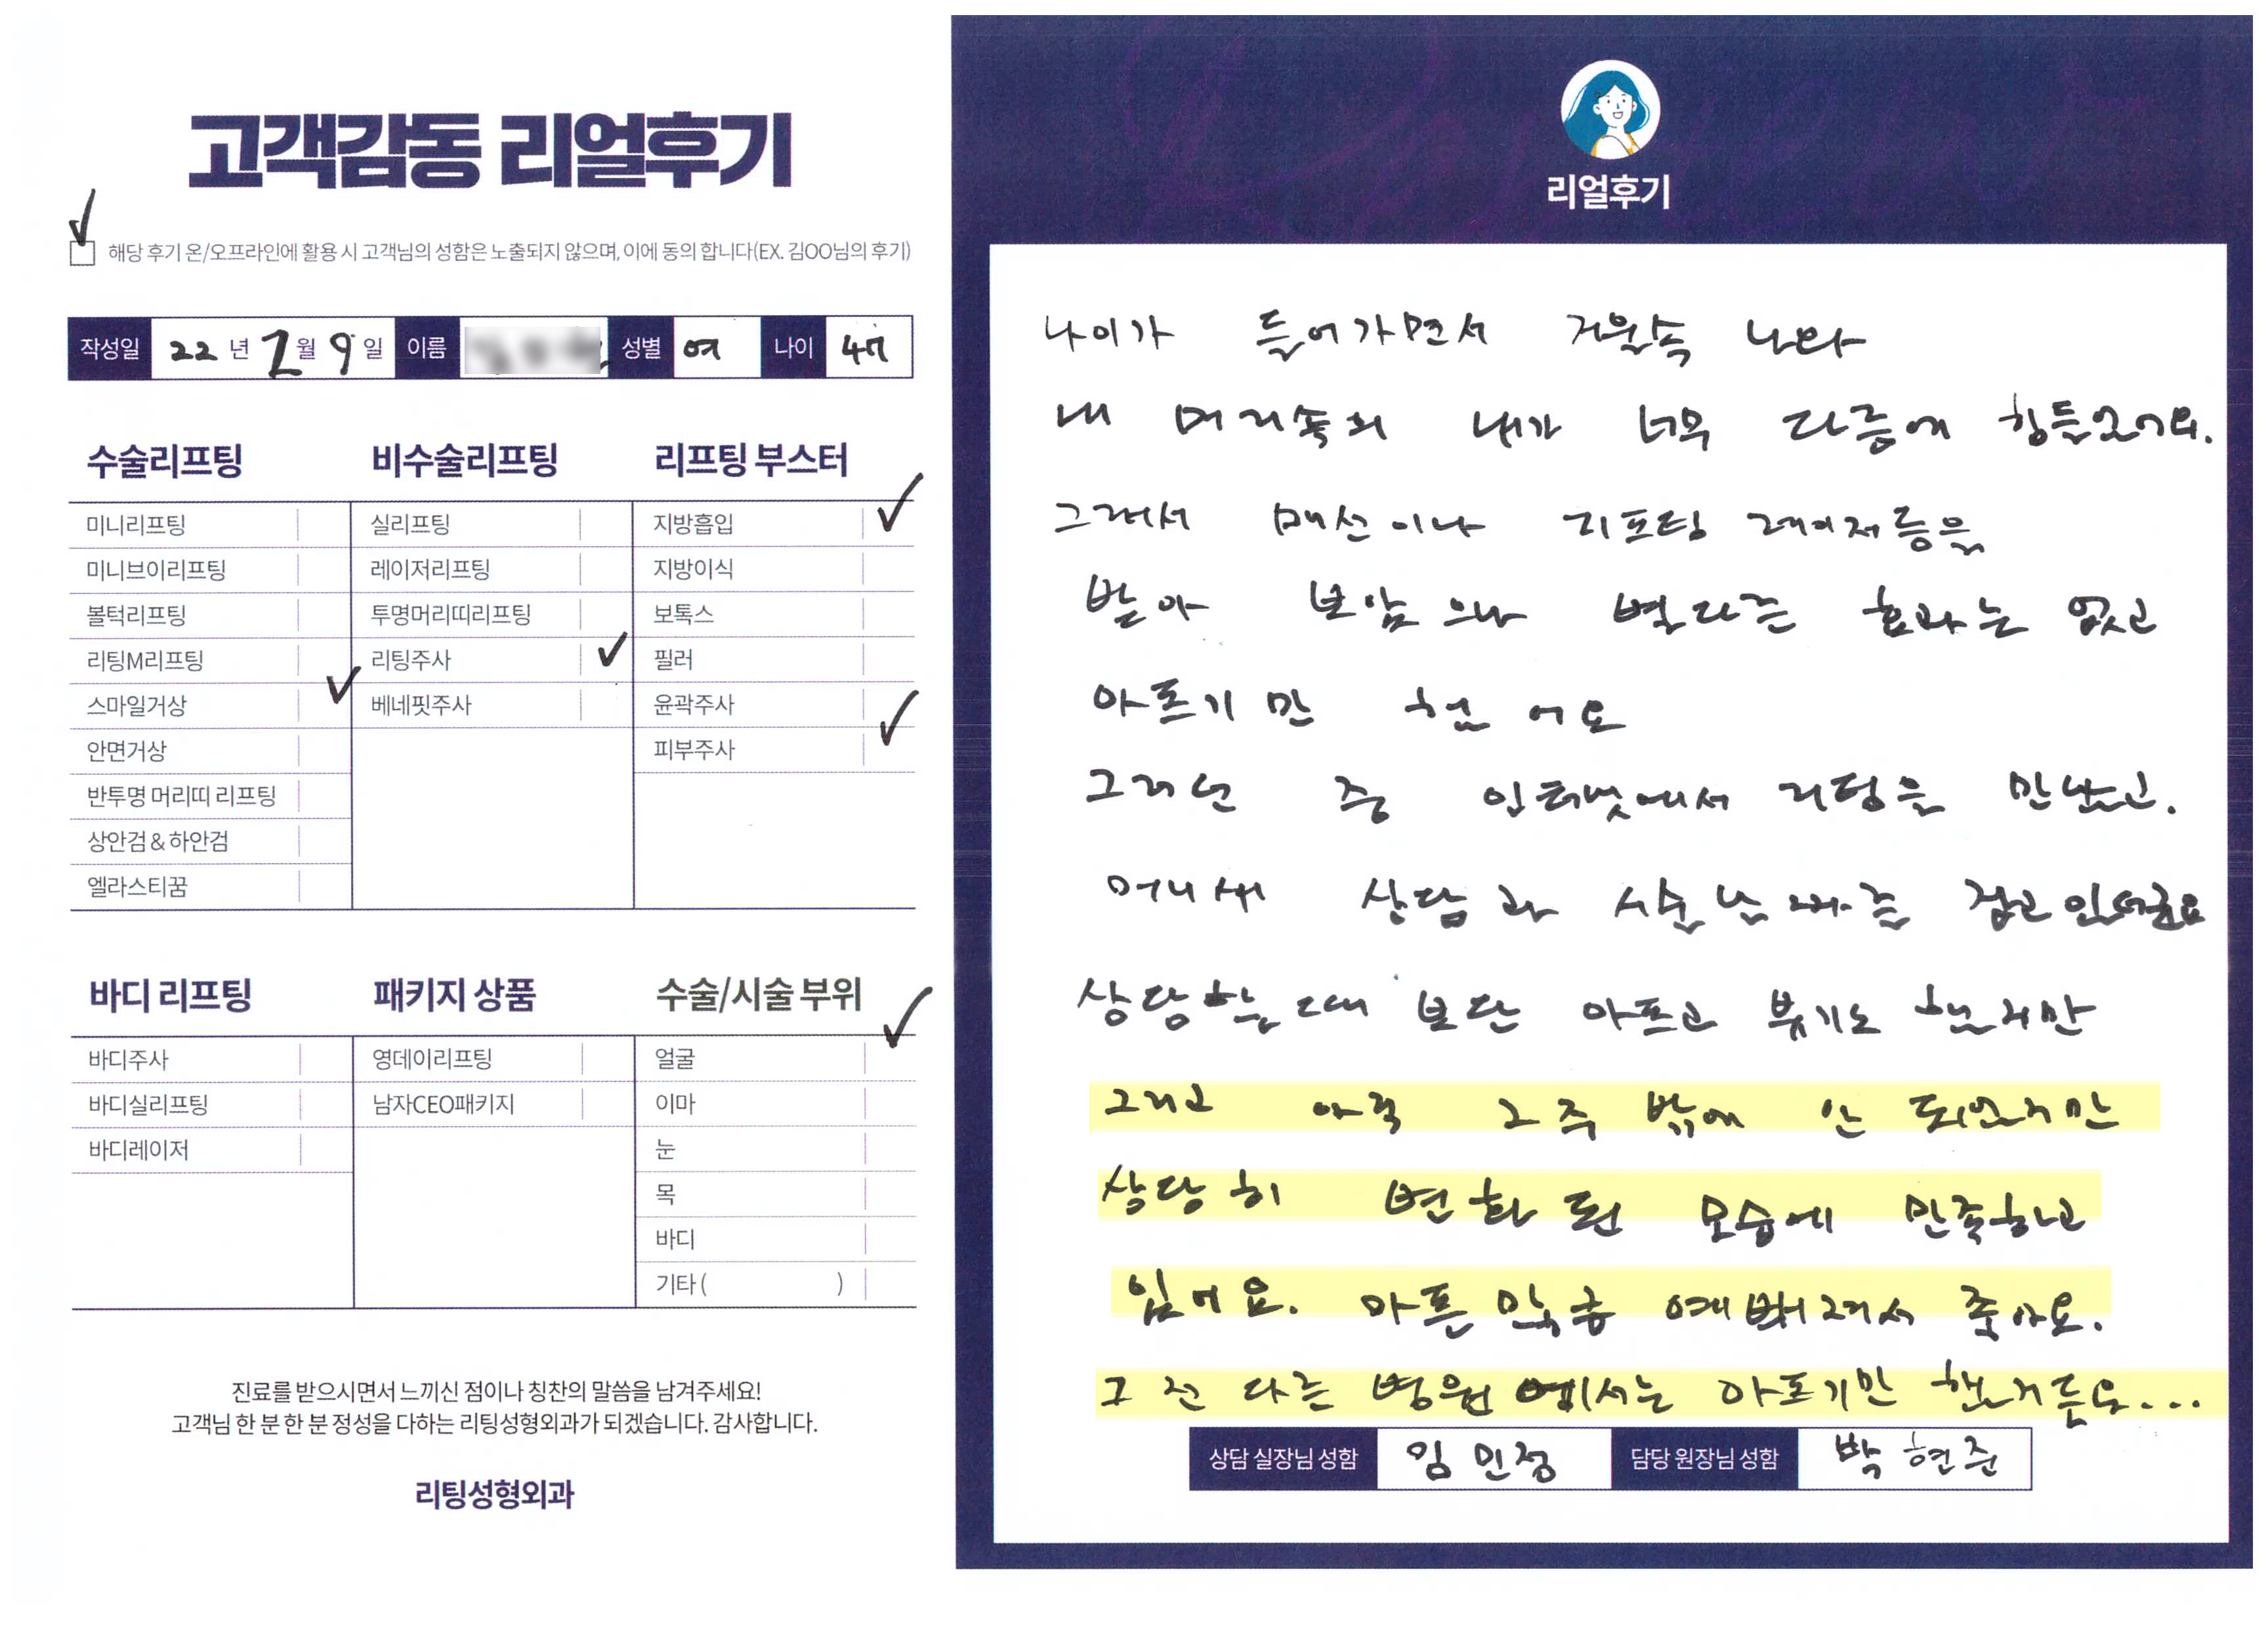 고객감동 리얼후기
해당 후기 온/오프라인에 활용 시 고객님의 성함은 노출되지 않으며, 이에 동의 합니다(EX. 김OO님의 후기)
작성일 22년 2월 9일 이름 성별 여 나이 47
수술리프팅
미니리프팅
미니브이리프팅
볼턱리프팅
리팅M리프팅
스마일거상
안면거상
반투명 머리띠 리프팅
상안검 & 하안검
엘라스티꿈
비수술리프팅
실리프팅
레이저리프팅
투명머리띠리프팅
리팅주사
베네핏주사
리프팅 부스터
지방흡입
지방이식
보톡스
필러
윤곽주사
피부주사
바디 리프팅
바디주사
바디실리프팅
바디레이저
패키지 상품
영데이리프팅
남자CEO패키지
수술/시술 부위
얼굴
이마
눈
목
바디
기타 ( )
진료를 받으시면서 느끼신 점이나 칭찬의 말씀을 남겨주세요!
고객님 한 분 한 분 정성을 다하는 리팅성형외과가 되겠습니다. 감사합니다.
리팅성형외과
리얼후기
나이가 들어가면서 거울속 나와
내 머리속의 내가 너무 다름에 힘들었어요.
그래서 매선이나 리프팅 레이저등을
받아 보았으나 별다른 효과는 없고
아프기만 했어요
그러던 중 인터넷에서 리팅을 만났고.
어느새 상담과 시술날짜를 잡고있더군요
상담할때 보단 아프고 붓기도 했지만
그리고 아직 2주 밖에 안 되었지만
상당히 변화된 모습에 만족하고
있어요. 아픈만큼 예뻐져서 좋아요.
그 전 다른 병원에서는 아프기만 했거든요...
상담 실장님 성함 임민정 담당 원장님 성함 박현준